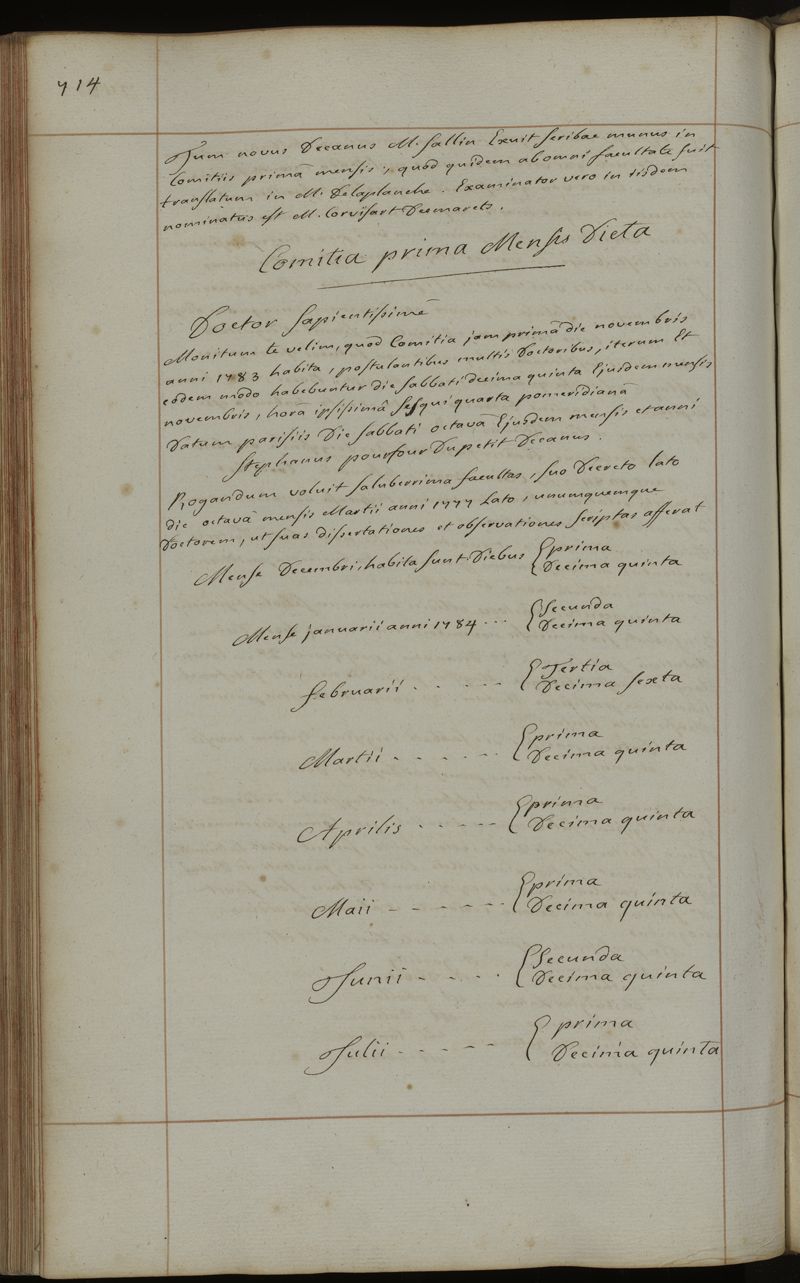 714
Tum novus Decanus M. Sallin Exuit scribae munus in
Comitiis primâ mensis, quod quidem ab omni facultate fuit
translatum in M. Delaplanche. Examinator vero in iisdem
nominatus est M. Corvisart Desmarets.
Comitia prima Mensis Dicta
Doctor Sapientissimè
Monitum te velim, quod Comitia jam primâ die novembris
anni 1783 habita, postulantibus multis Doctoribus, iterum Et
eodem modo habebuntur die sabbati decima quinta Ejusdem mensis
novembris, horâ ipsissimâ sesqui quarta pomeridianâ
Datum parisiis Die sabbati octavâ Ejusdem mensis et anni
Stephanus pourfour Dupetit Decanus.
Rogandum voluit saluberrima facultas, suo Decreto lato
die octavâ mensis Martii anni 1777 Lato, unumquemque
Doctorem, ut suas dissertationes et observationes scriptas afferat
Mense Decembri, habita sunt Diebus { prima
Decima quinta
Mense januarii anni 1784 ... { Secunda
Decima quinta
februarii . . . . . { Tertia
Decima sexta
Martii . . . . . { prima
Decima quinta
Aprilis . . . . . { prima
Decima quinta
Maii . . . . . { prima
Decima quinta
Junii . . . . . { Secunda
Decima quinta
Julii . . . . . { prima
Decima quinta